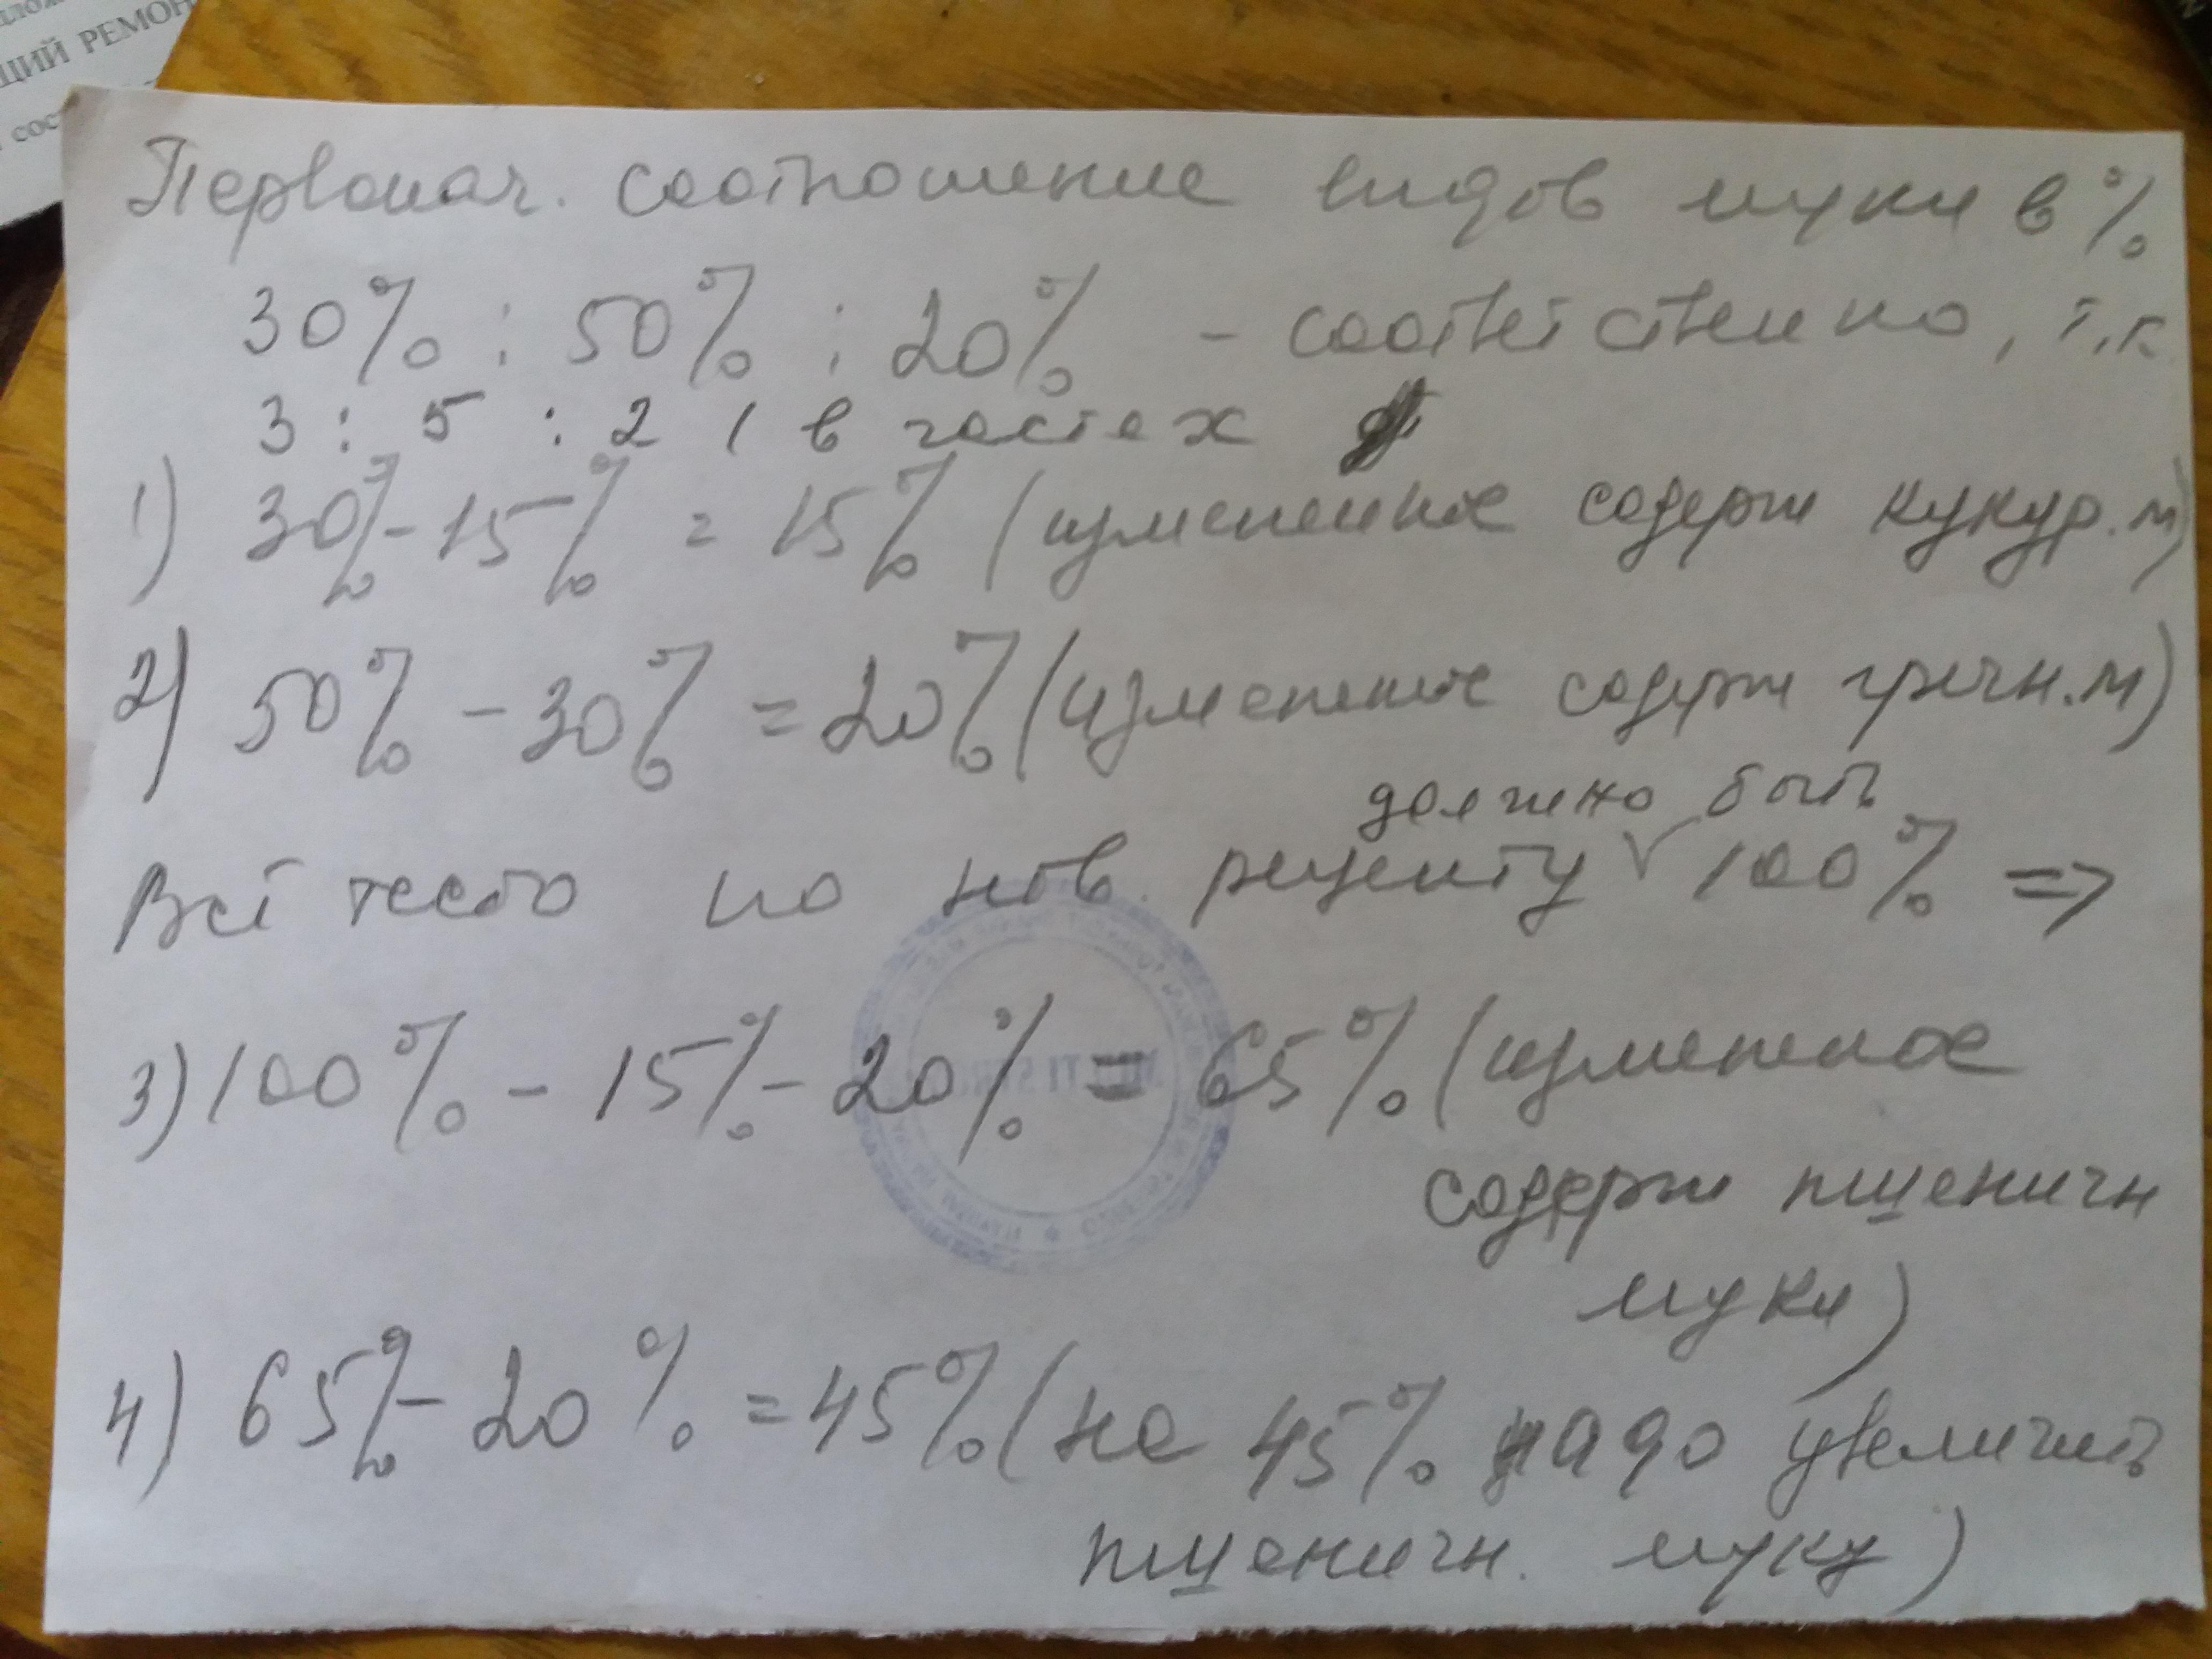 ЩИЙ РЕМОН
Первонач. соотношение видов муки в %
30% : 50% : 20% - соответственно, т.к.
3 : 5 : 2 , в частях
1) 30% - 15% = 15% (измененное содерж кукур. м)
2) 50% - 30% = 20% (измененное содерж гречн. м)
должно быть
Всё тесто по нов. рецепту √ 100% =>
3) 100% - 15% - 20% = 65% (измененное
содерж пшеничн
муки)
4) 65% - 20% = 45% (на 45% надо увеличить
пшеничн. муку)